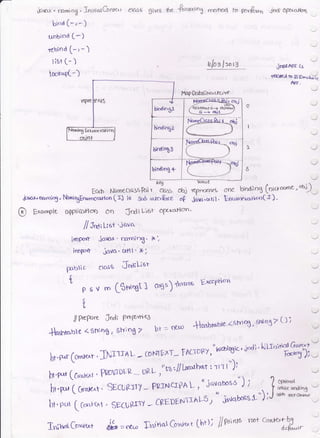 javax.naming.InitialContext class gives the following method to perform Jndi operations
bind(-,-)
unbind(-)
rebind(-,-)
list(-)
lookup(-)
11/03/2013
Jndi API is
represents
Naming Enumeration
object
binding1
NameClassPair obj
0
binding2
1
binding3
NameClassPair obj
2
binding4
NameClassPair obj
3
key
value
Each NameClassPair class obj represents one binding (nickname, obj)
javax.naming.NamingEnumeration(I) is sub interface of java.util.Enumeration(I).
Example application on Jndi List operation.
// JndiList.java
import javax.naming.*;
import java.util.*;
public class JndiList
{
p s v m (String[] args) throws Exception
{
// prepare Jndi properties
Hashtable <String, String> ht = new Hashtable<String, String>();
ht.put(Context.INITIAL_CONTEXT_FACTORY, "weblogic.jndi.WLInitialContextFactory");
ht.put(Context.PROVIDER_URL, "t3://localhost:7171");
ht.put(Context.SECURITY_PRINCIPAL, "javaboss");
ht.put(Context.SECURITY_CREDENTIALS, "javaboss1");
optional
while working
with
InitialContext ic = new InitialContext(ht); // points root context by default